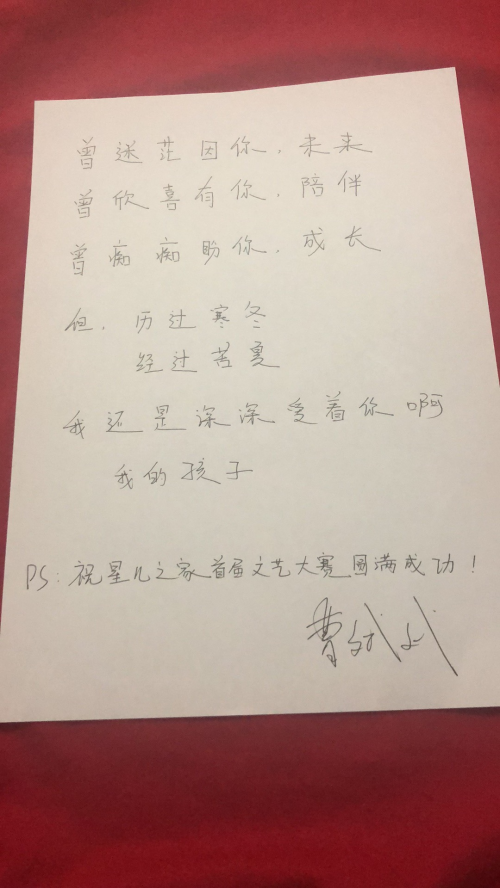 曾迷茫因你，未来
曾欣喜有你，陪伴
曾痴痴盼你，成长
但，历过寒冬
经过苦夏
我还是深深爱着你啊
我的孩子
PS：祝星儿之家首届文艺大赛圆满成功！